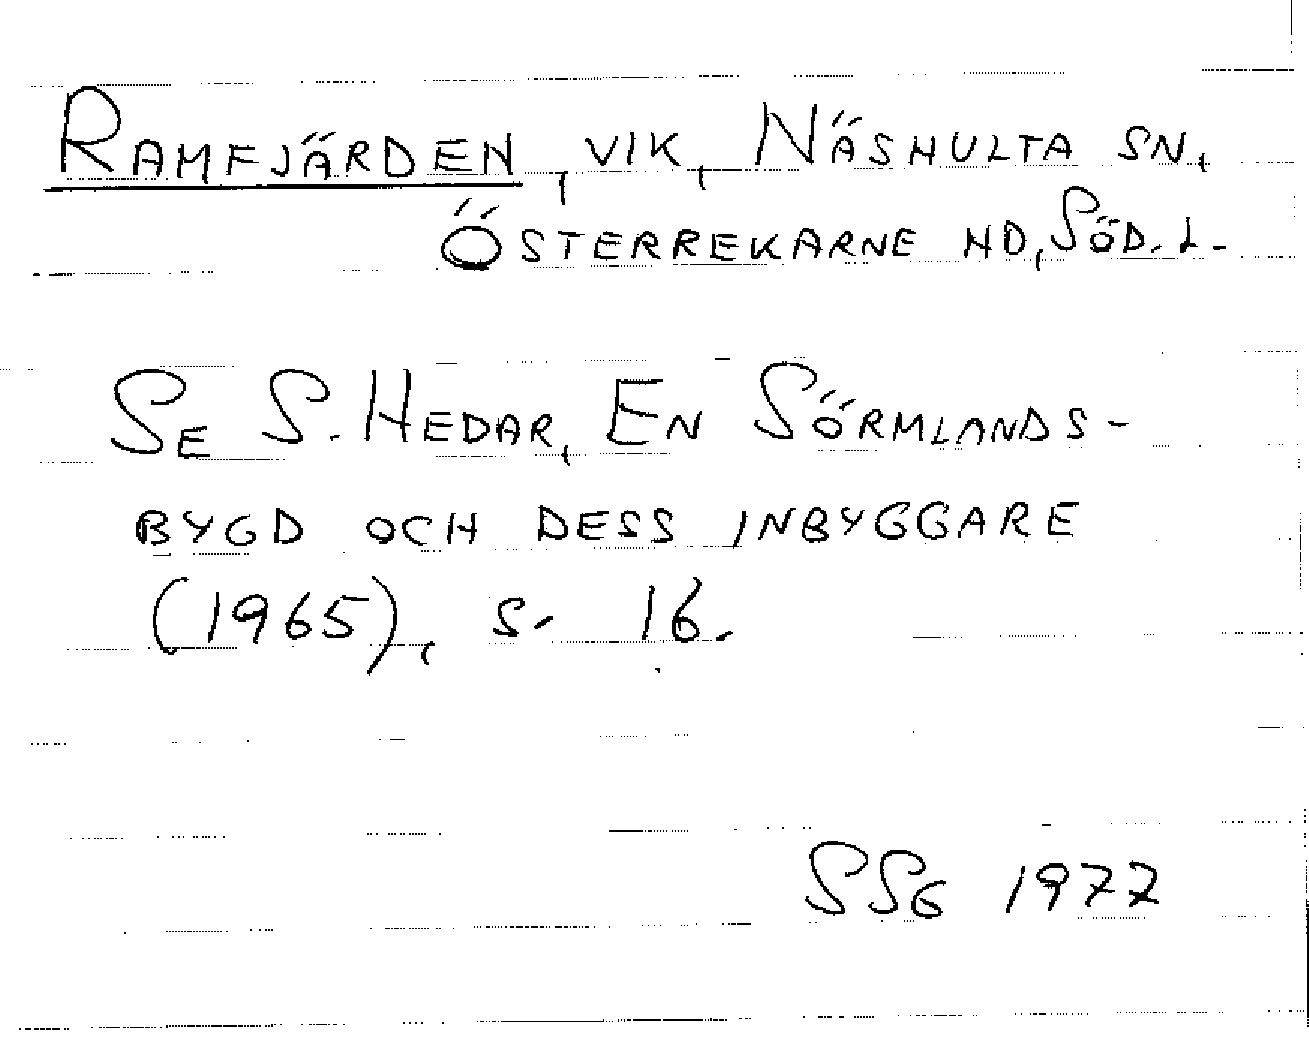 RAMFJÄRDEN, VIK, NÄSHULTA SN,
ÖSTERREKARNE HD, SÖD. L.
SE S. HEDAR, EN SÖRMLANDS-
BYGD OCH DESS INBYGGARE
(1965), S. 16.
SSG 1977